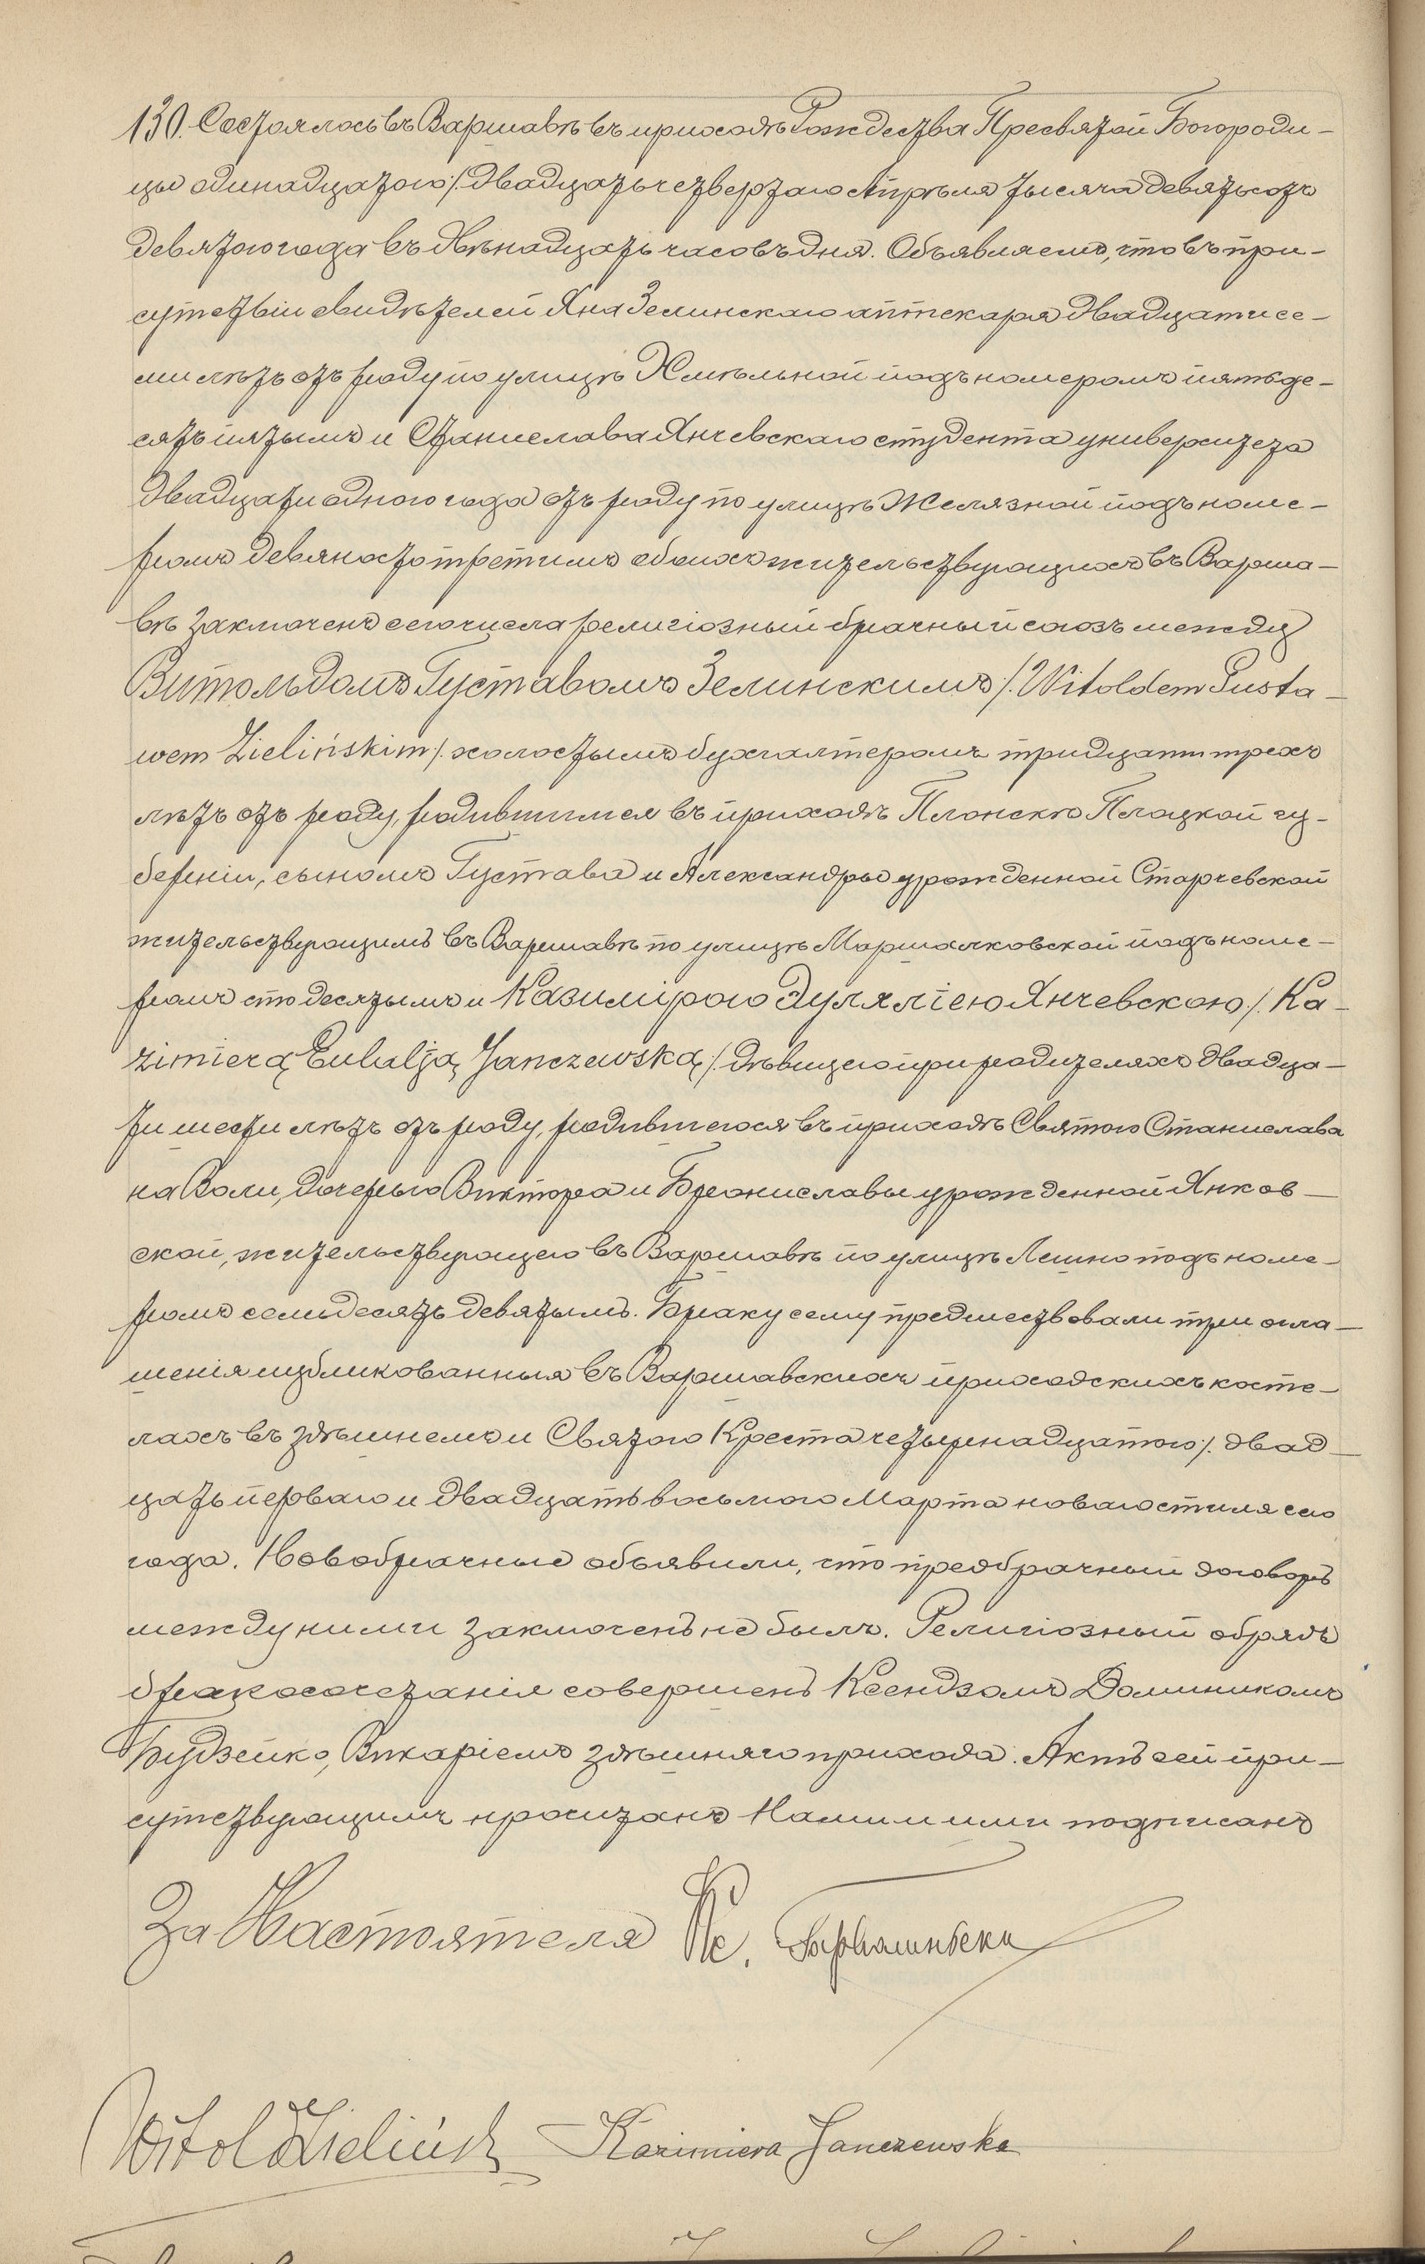 130. Состоялось въ Варшавѣ въ приходѣ Рождества Пресвятой Богороди-
цы одинадцатого /. двадцать четвертаго Апрѣля тысяча девятьсотъ
девятого года въ двѣнадцать часовъ дня. Объявляемъ, что въ при-
сутствіи свидѣтелей Яна Зелинскаго аптекаря двадцати се-
ми лѣтъ отъ роду по улицѣ Хмѣльной подъ номеромъ пятьде-
сятъ пятымъ и Станислава Янчевскаго студента университета
двадцати одного года отъ роду по улицѣ Желязной подъ номе-
ромъ девяносто третимъ обоихъ жительствующихъ въ Варша-
вѣ заключенъ сего числа религіозный брачный союзъ между
Витольдомъ Густавомъ Зелинскимъ /. Witoldem Gusta-
wem Zielińskim /. холостымъ бухгалтеромъ тридцати трехъ
лѣтъ отъ роду, родившимся въ приходѣ Плонскъ Плоцкой гу-
берніи, сыномъ Густава и Александры урожденной Старчевской
жительствующимъ въ Варшавѣ по улицѣ Маршалковской подъ номе-
ромъ сто десятымъ и Казимірою Эуляліею Янчевскою /. Ka-
zimierą Eulalją Janczewską /. дѣвицею при родителяхъ двадца-
ти шести лѣтъ отъ роду, родившеюся въ приходѣ Святого Станислава
на Воли, дочерью Виктора и Брониславы урожденной Янков-
ской, жительствующею въ Варшавѣ по улицѣ Лешно подъ номе-
ромъ семьдесятъ девятымъ. Браку сему предшествовали три огла-
шенія публикованныя въ Варшавскихъ приходскихъ косте-
лахъ въ здѣшнемъ и Святого Креста четырнадцатого /. двад-
цать перваго и двадцать восьмого Марта новаго стиля сего
года. Новобрачные объявили, что предбрачный договоръ
между ними заключенъ не былъ. Религіозный обрядъ
бракосочетанія совершенъ Ксендзомъ Доминикомъ
Будзейко, Викаріемъ здѣшняго прихода. Актъ сей при-
сутствующимъ прочитанъ Нами и ими подписанъ
За Настоятеля Кс.
Witold Zieliński Kazimiera Janczewska